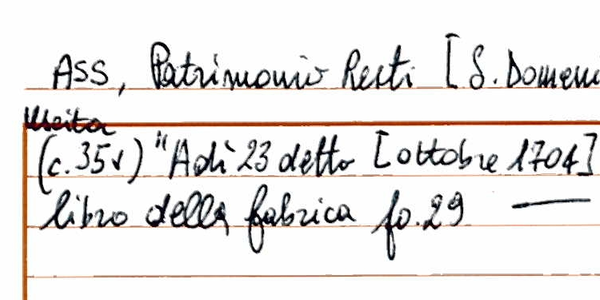 ASS, Patrimonio Resti [S. Domeni
Uscita
(c.35v) "Adì 23 detto [ottobre 1704]
libro della fabrica fo.29 —